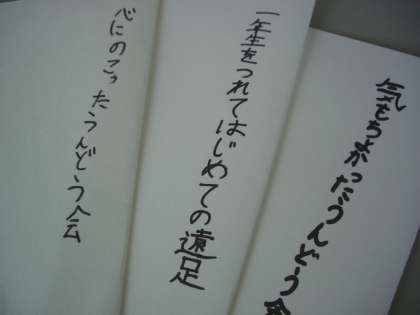 気もちよかったうんどう会
一年生をつれてはじめての遠足
心にのこったうんどう会